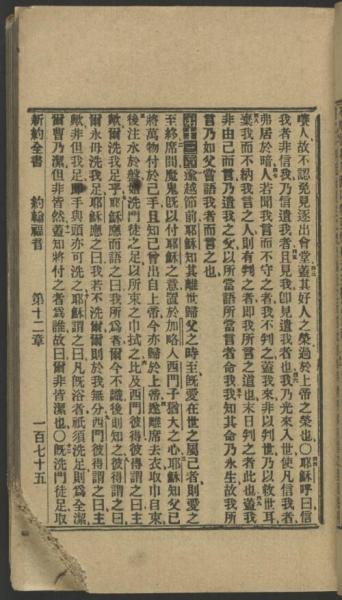 嚷人故不認免見逐出會堂蓋其好人之榮過於上帝之榮也〇耶穌呼曰信
我者非信我乃信遣我者且見我卽見遣我者也我乃光來入世使凡信我者
弗居於暗人若聞我言而不守之者我不判之蓋我來非以判世乃以救世耳
棄我而不納我言之人則有判之者卽我所言之道也末日判之者此也蓋我
非由己而言乃遣我之父以所當語所當言者命我我知其命乃永生故我所
言乃如父嘗語我者而言之也
第十三章 逾越節前耶穌知其離世歸父之時至旣愛在世之屬己者則愛之
至終席間魔鬼旣以付耶穌之意置於加畧人西門子猶大之心耶穌知父已
將萬物付於己手且知己曾出自上帝今亦歸於上帝遂離席去衣取巾自束
後注水於盤洗門徒之足以所束之巾拭之比及西門彼得彼得謂之曰主
歟爾洗我足乎耶穌應而語之曰我所爲者爾今不識後則知之彼得謂之曰
爾永毋洗我足耶穌應之曰我若不洗爾爾則於我無分西門彼得謂之曰主
歟非但我足手與頭亦可洗之耶穌謂之曰凡旣浴者祇須洗足則爲全潔
爾曹乃潔但非皆然蓋知將付之者爲誰故曰爾非皆潔也〇旣洗門徒足取
新約全書 約翰福音 第十二章 一百七十五